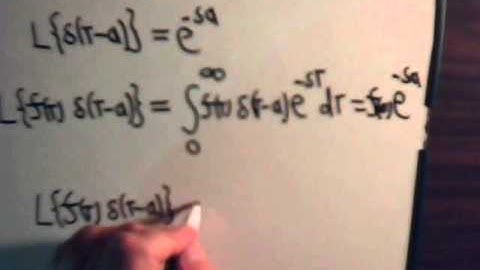 L{δ(t-a)} = e^{-sa}
L{f(t) δ(t-a)} = ∫_0^∞ f(t) δ(t-a) e^{-st} dt = f(a) e^{-sa}
L{f(t) δ(t-a)}